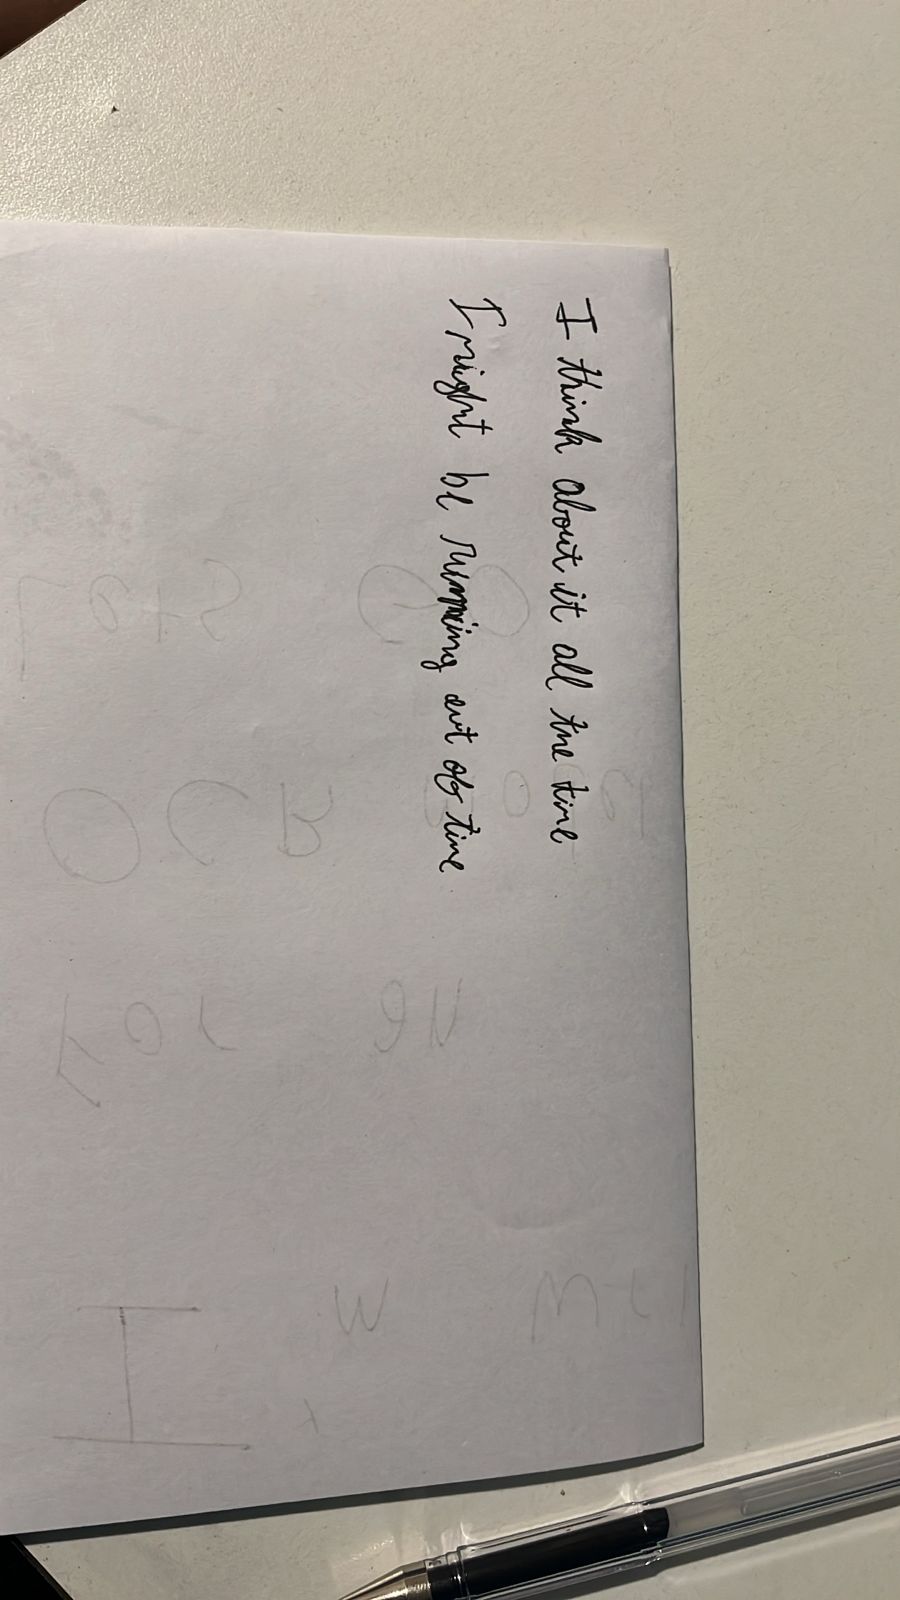 I think about it all the time
I might be running out of time